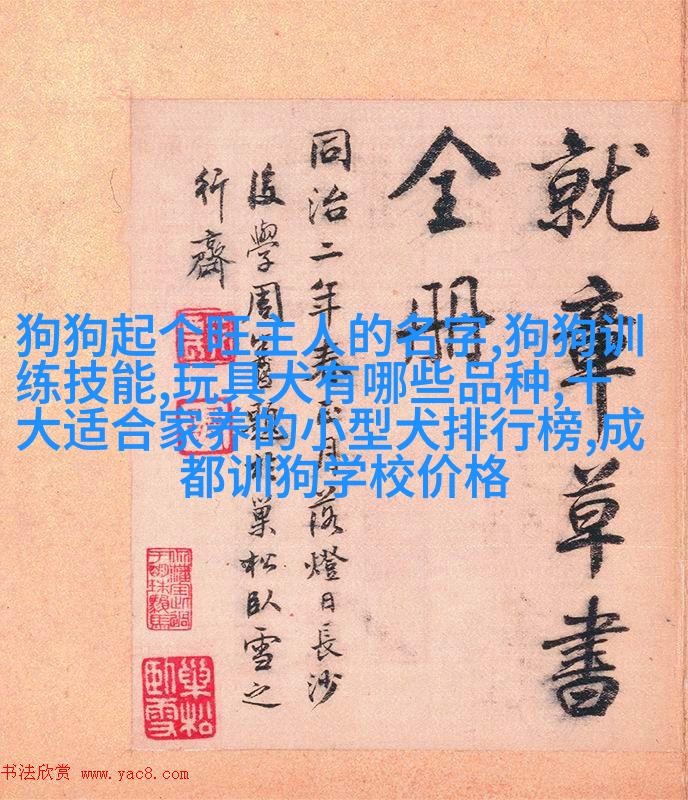 就章草書
全冊
同治二年春正月落燈日長沙
後學周題於巢松臥雪之
行齋
狗狗起个旺主人的名字,狗狗训
练技能,玩具犬有哪些品种,十
大适合家养的小型犬排行榜,成
都训狗学校价格
巢松
臥雪
书法欣赏 www.yac8.com